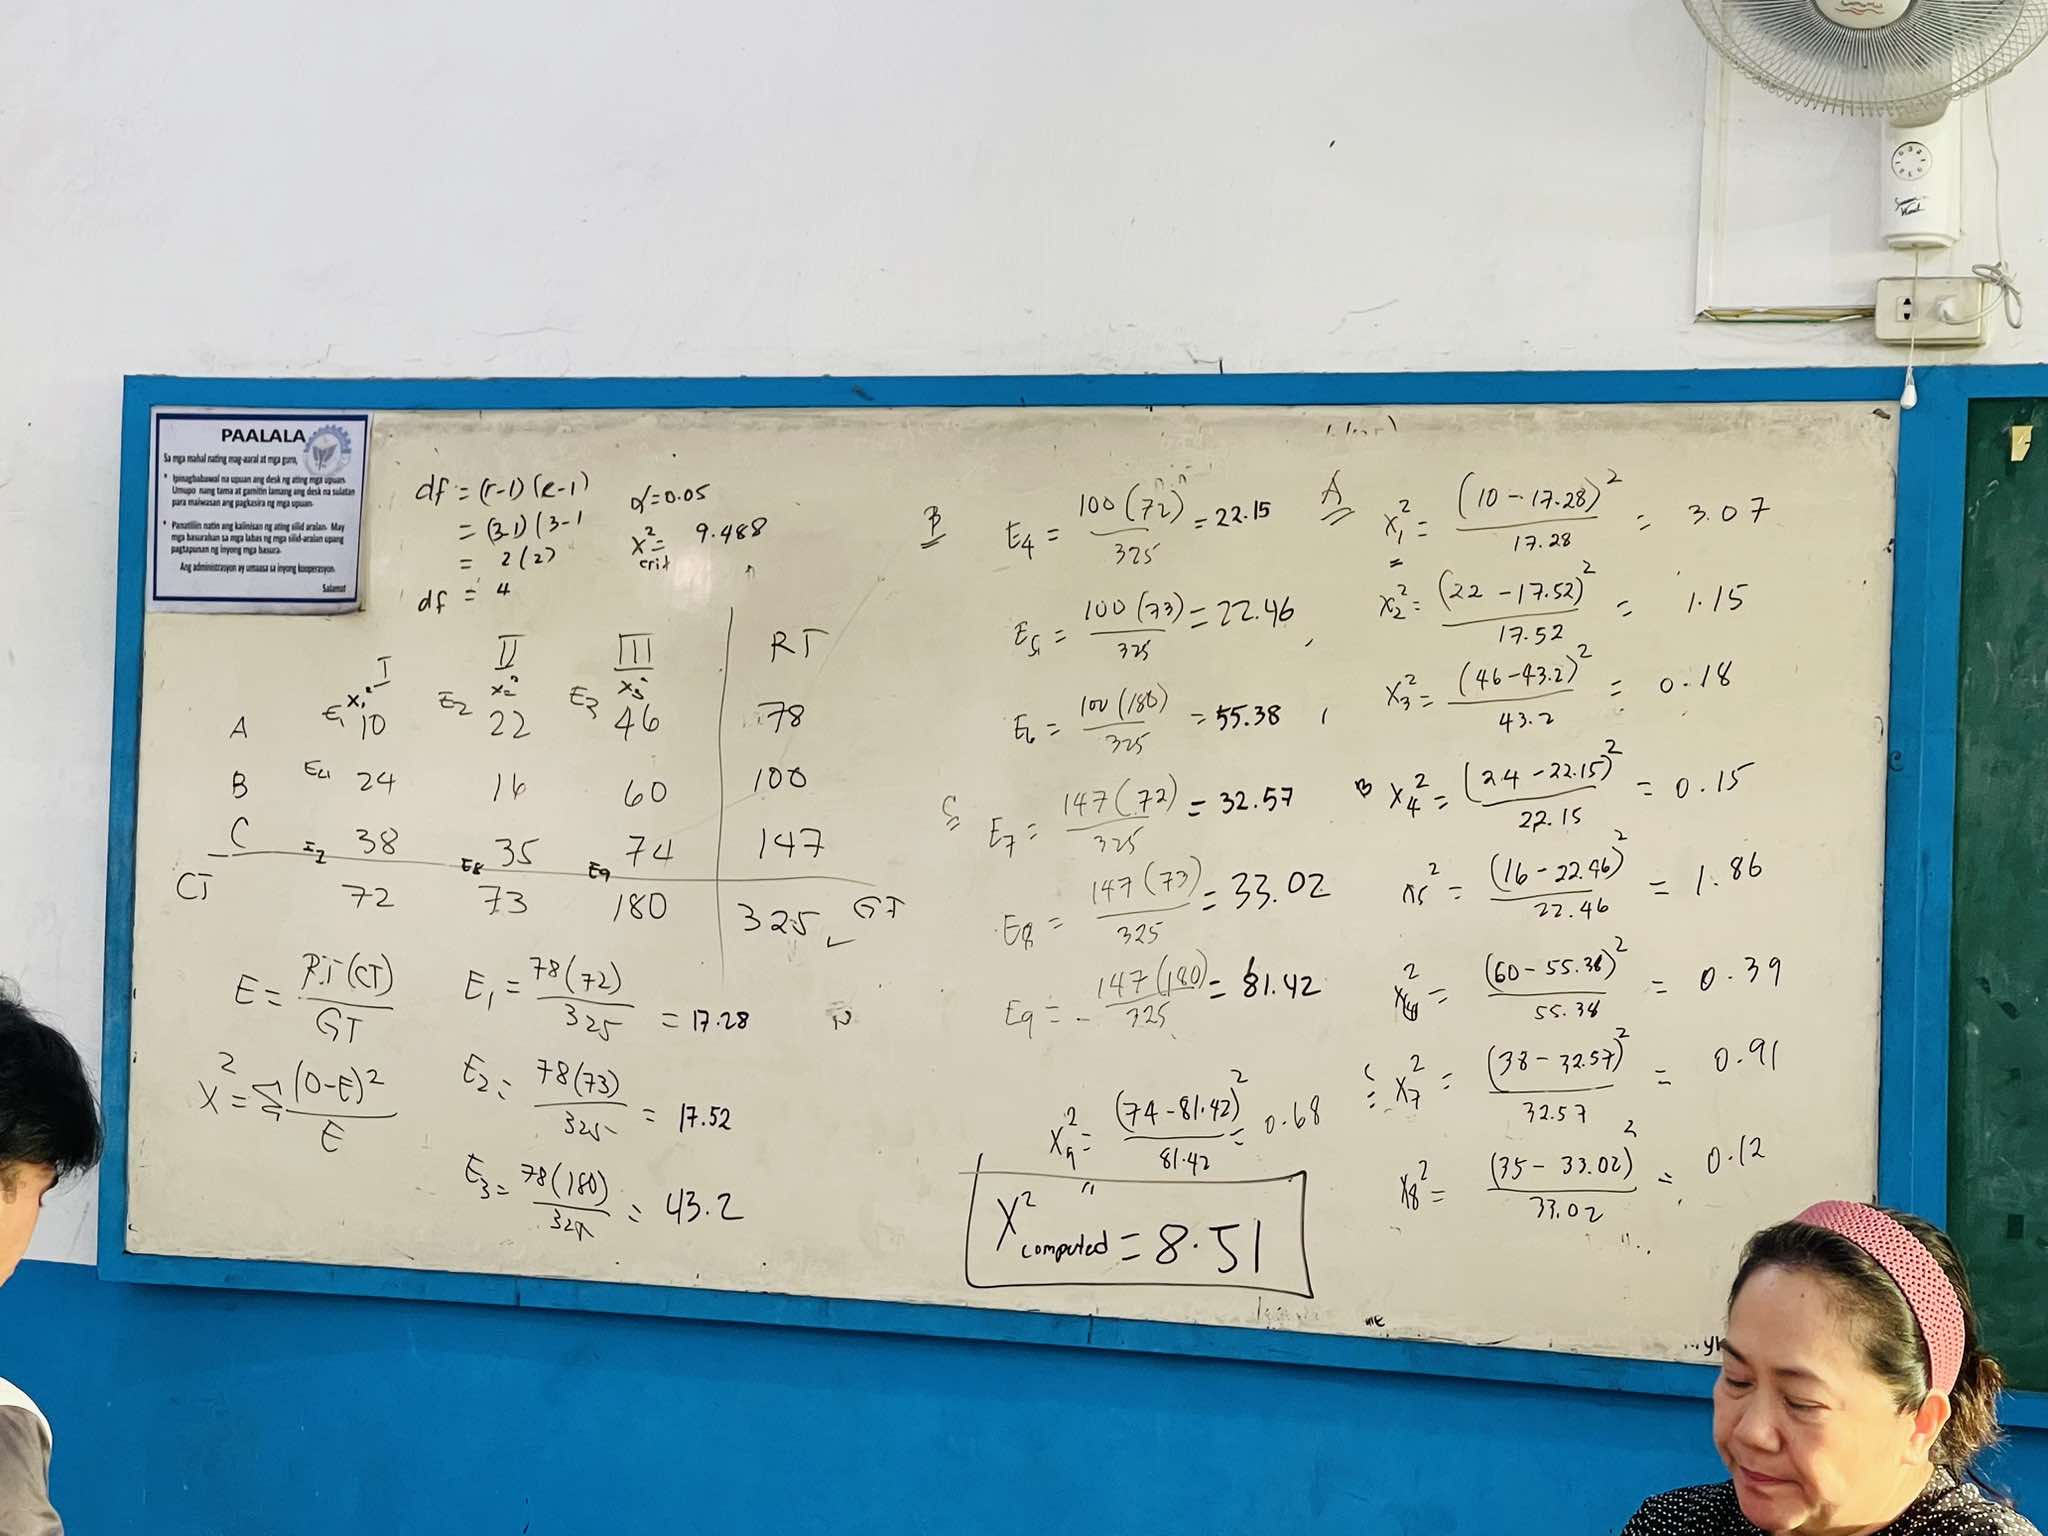 PAALALA
Sa mga mahal nating mag-aaral at mga guro,
• Ipinagbabawal na upuan ang desk ng ating mga upuan.
Umupo nang tama at gamitin lamang ang desk na sulatan
para maiwasan ang pagkasira ng mga upuan.
• Panatiliin natin ang kalinisan ng ating silid aralan. May
mga basurahan sa mga labas ng mga silid-aralan upang
pagtapunan ng inyong mga basura.
Ang administrasyon ay umaasa sa inyong kooperasyon.
Salamat
df = (r-1)(k-1)
= (3-1)(3-1
= 2(2)
df = 4
α=0.05
X² crit = 9.488
I II III RT
E₁ X₁² E₂ X₂² E₃ X₃²
A 10 22 46 78
B E₄ 24 16 60 100
C E₇ 38 E₈ 35 E₉ 74 147
CT 72 73 180 325 GT
E = RT(CT)/GT
X² = Σ (O-E)²/E
E₁ = 78(72)/325 = 17.28
E₂ = 78(73)/325 = 17.52
E₃ = 78(180)/325 = 43.2
B
E₄ = 100(72)/325 = 22.15
E₅ = 100(73)/325 = 22.46
E₆ = 100(180)/325 = 55.38
C
E₇ = 147(72)/325 = 32.57
E₈ = 147(73)/325 = 33.02
E₉ = 147(180)/325 = 81.42
A
X₁² = (10-17.28)²/17.28 = 3.07
X₂² = (22-17.52)²/17.52 = 1.15
X₃² = (46-43.2)²/43.2 = 0.18
B X₄² = (24-22.15)²/22.15 = 0.15
X₅² = (16-22.46)²/22.46 = 1.86
X₆² = (60-55.38)²/55.38 = 0.39
C X₇² = (38-32.57)²/32.57 = 0.91
X₈² = (35-33.02)²/33.02 = 0.12
X₉² = (74-81.42)²/81.42 = 0.68
X² computed = 8.51